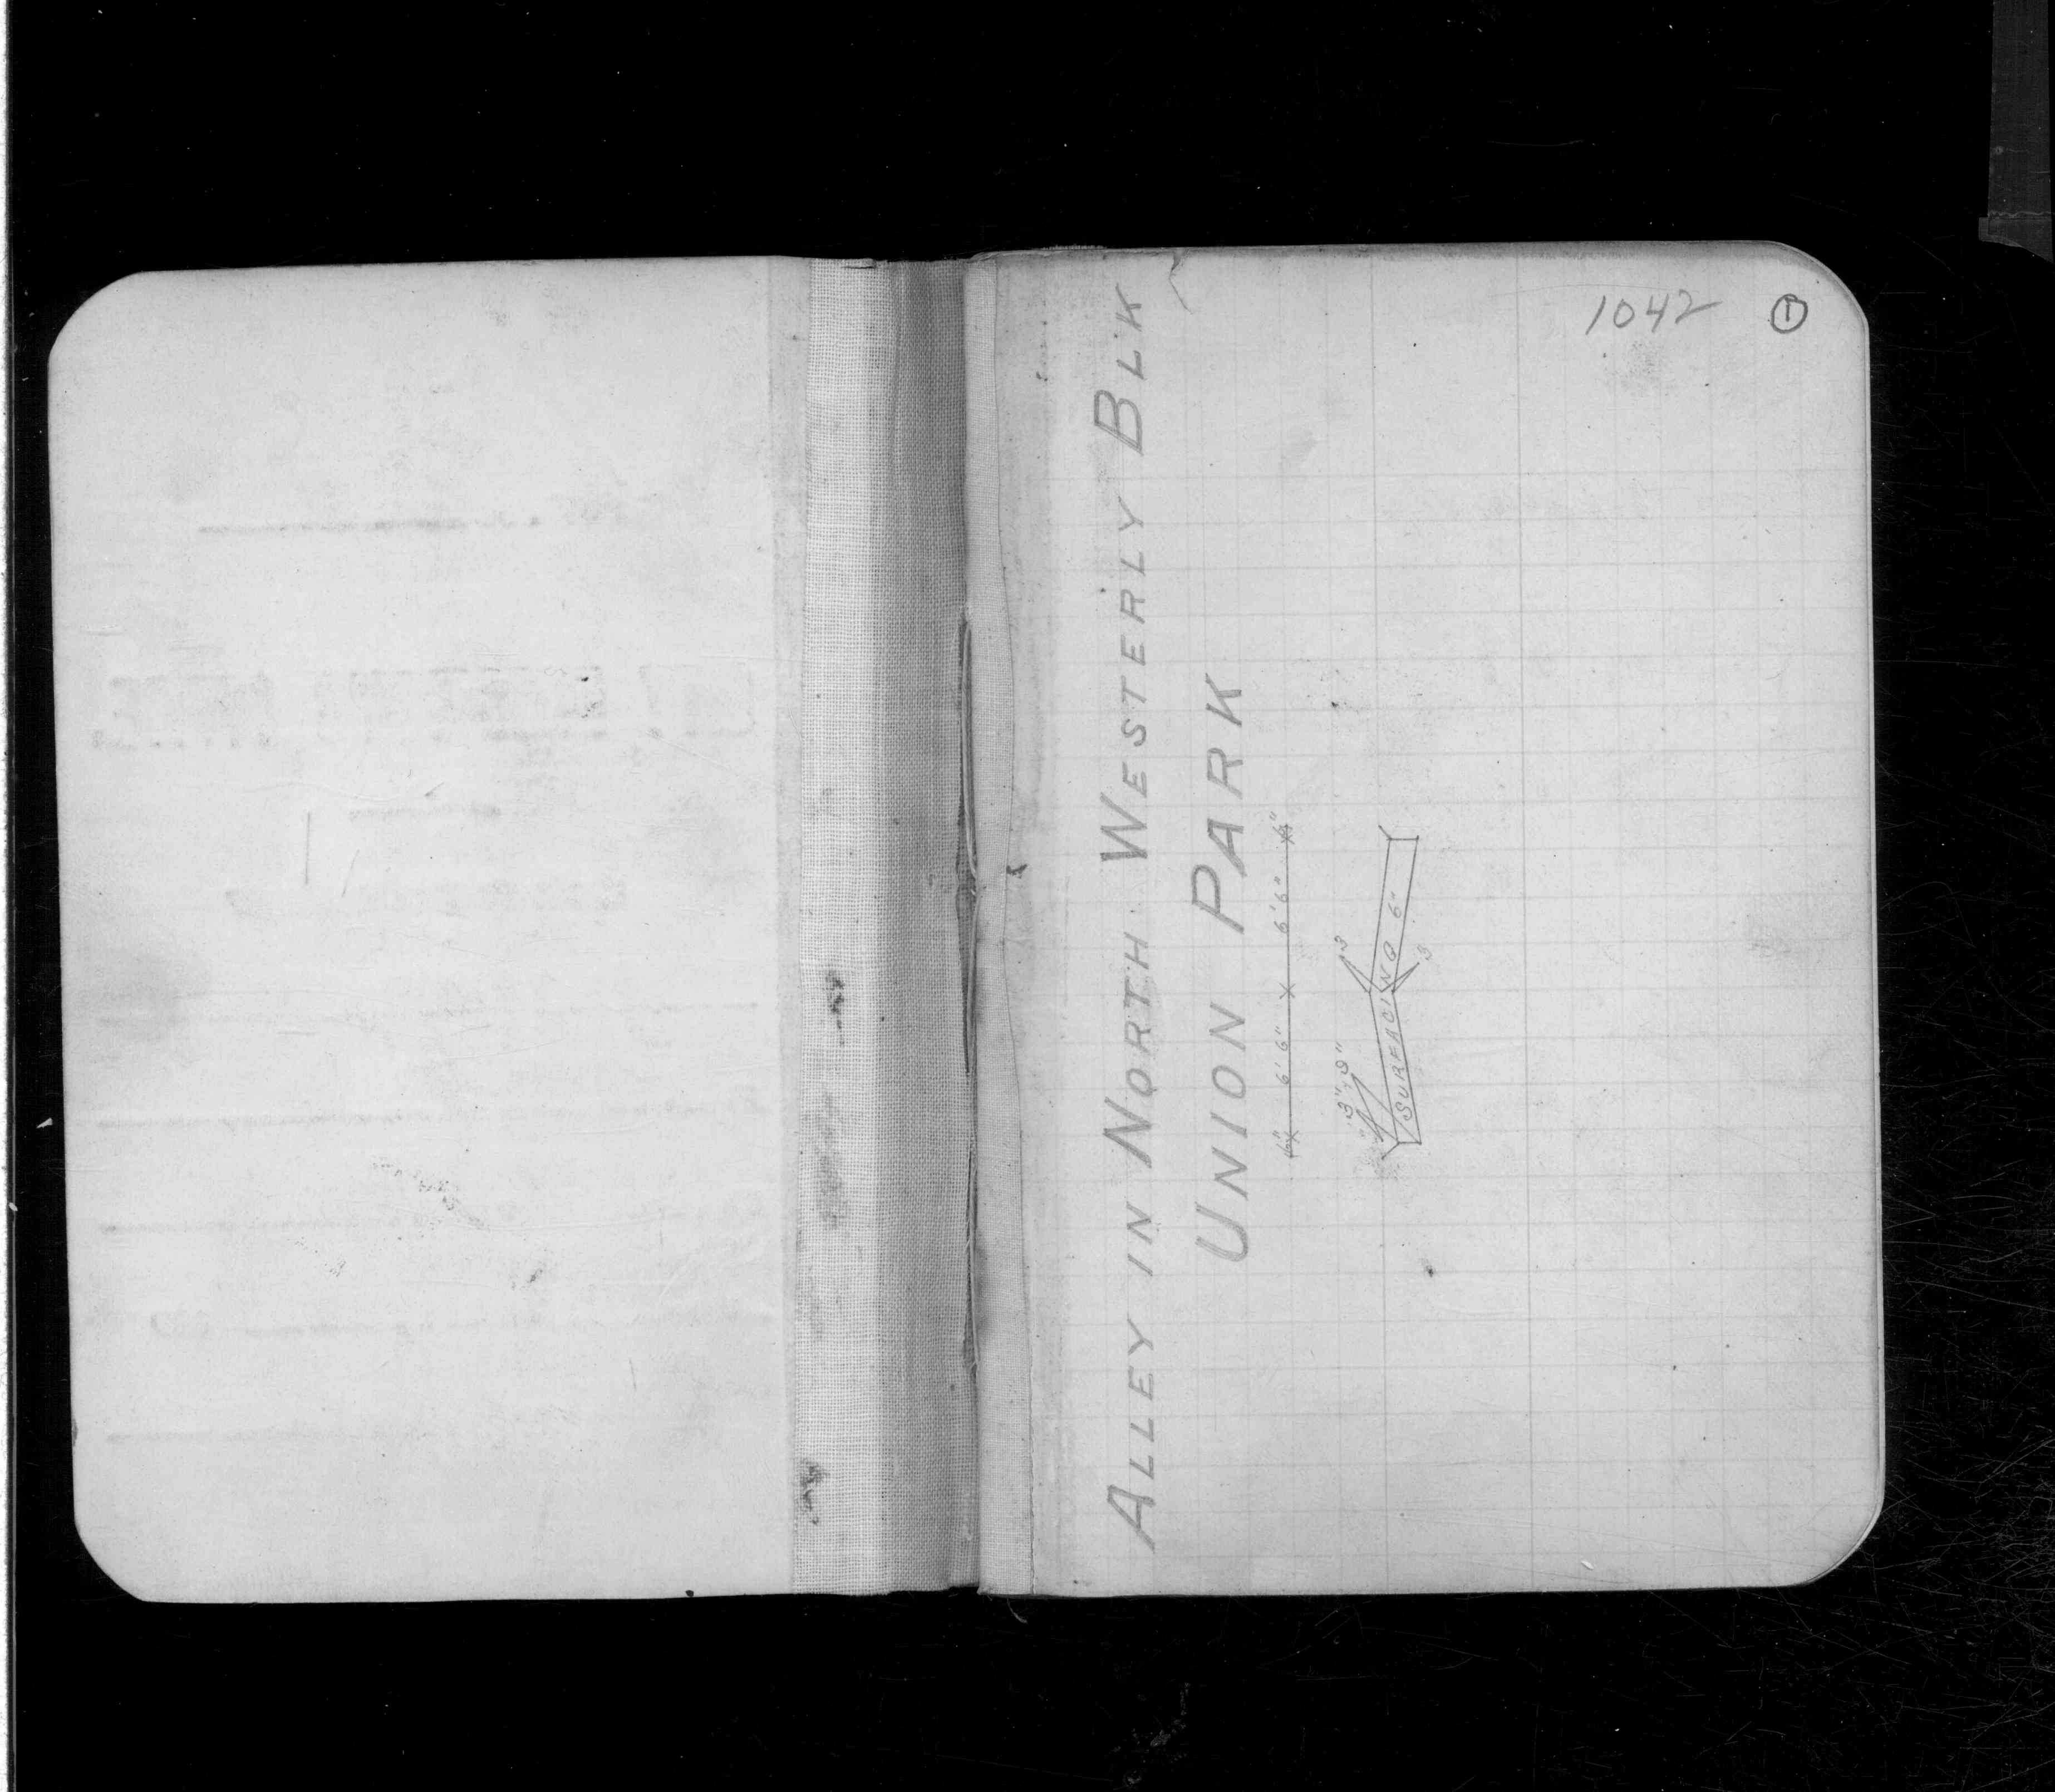 1042 1
ALLEY IN NORTH WESTERLY BLK
UNION PARK
6" 6'6" 6'6" 6"
3"
3
SURFACING 6"
3